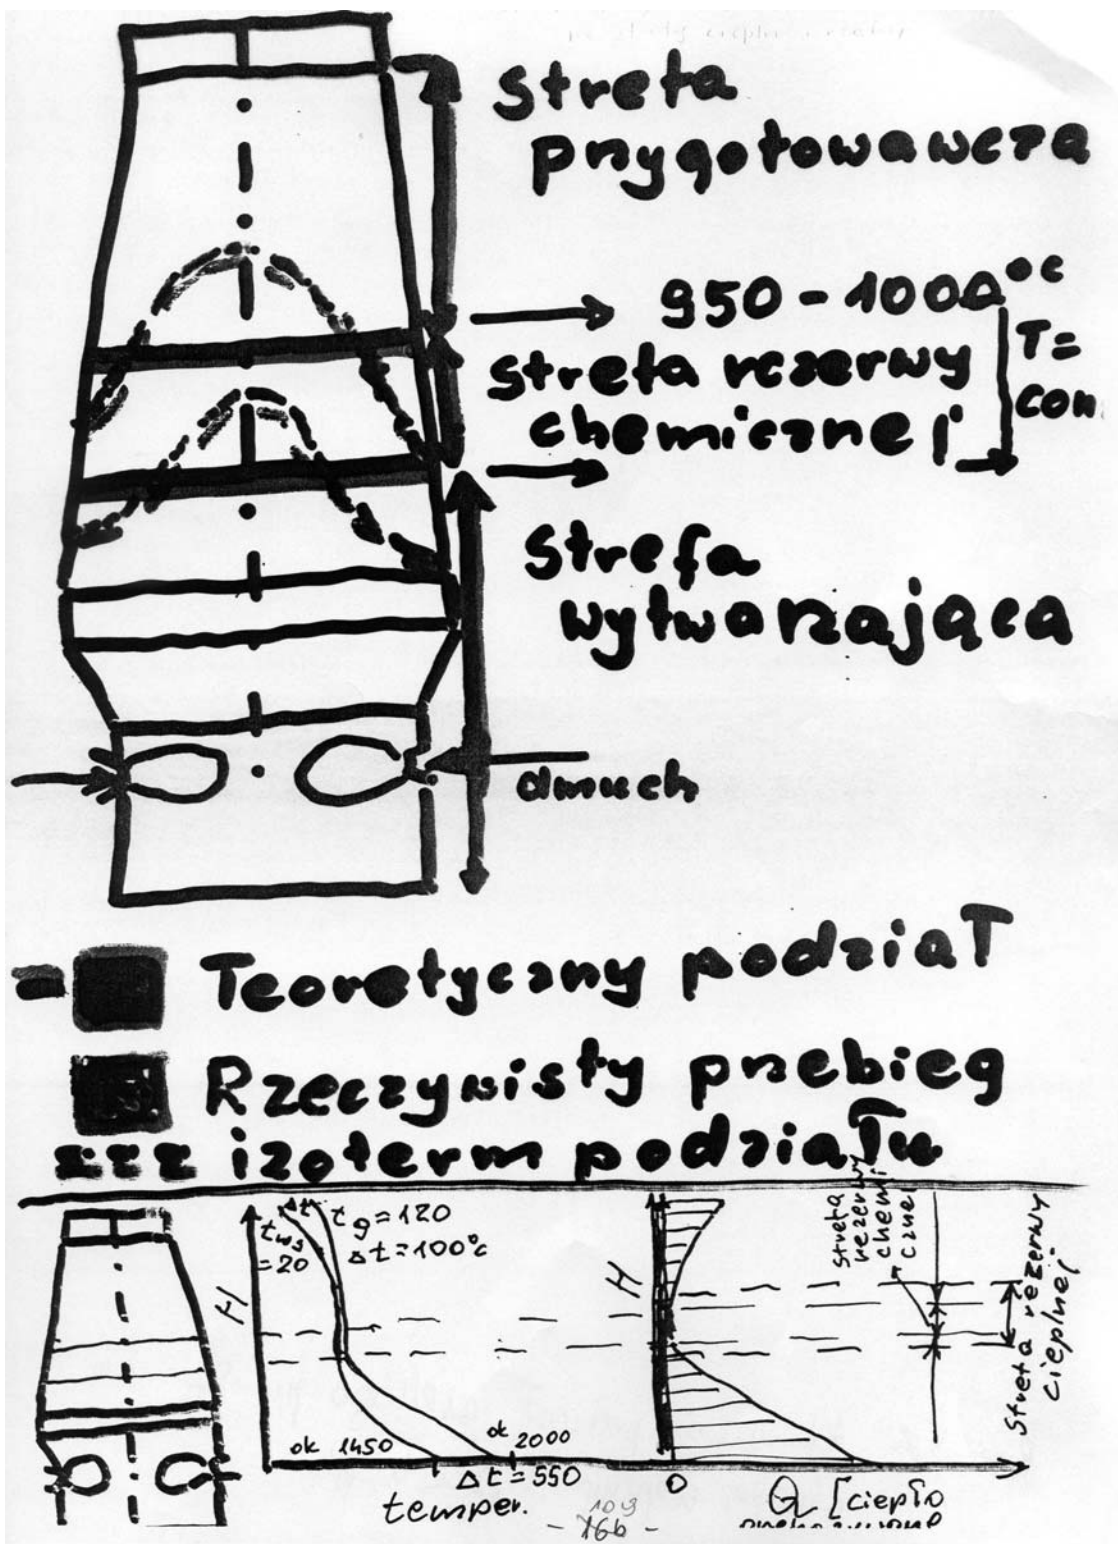 strefa
przygotowawcza
950 - 1000 °C
strefa rezerwy
chemicznej
T=
con
strefa
wytwarzająca
dmuch
Teoretyczny podział
Rzeczywisty przebieg
izoterm podziału
Δt
tg = 120
Δt = 100°C
tws
= 20
H
ok 1450
ok 2000
Δt = 550
temper.
H
strefa
rezerwy
chemi
cznej
strefa rezerwy
cieplnej
0
Q [ciepło
109
- 166 -